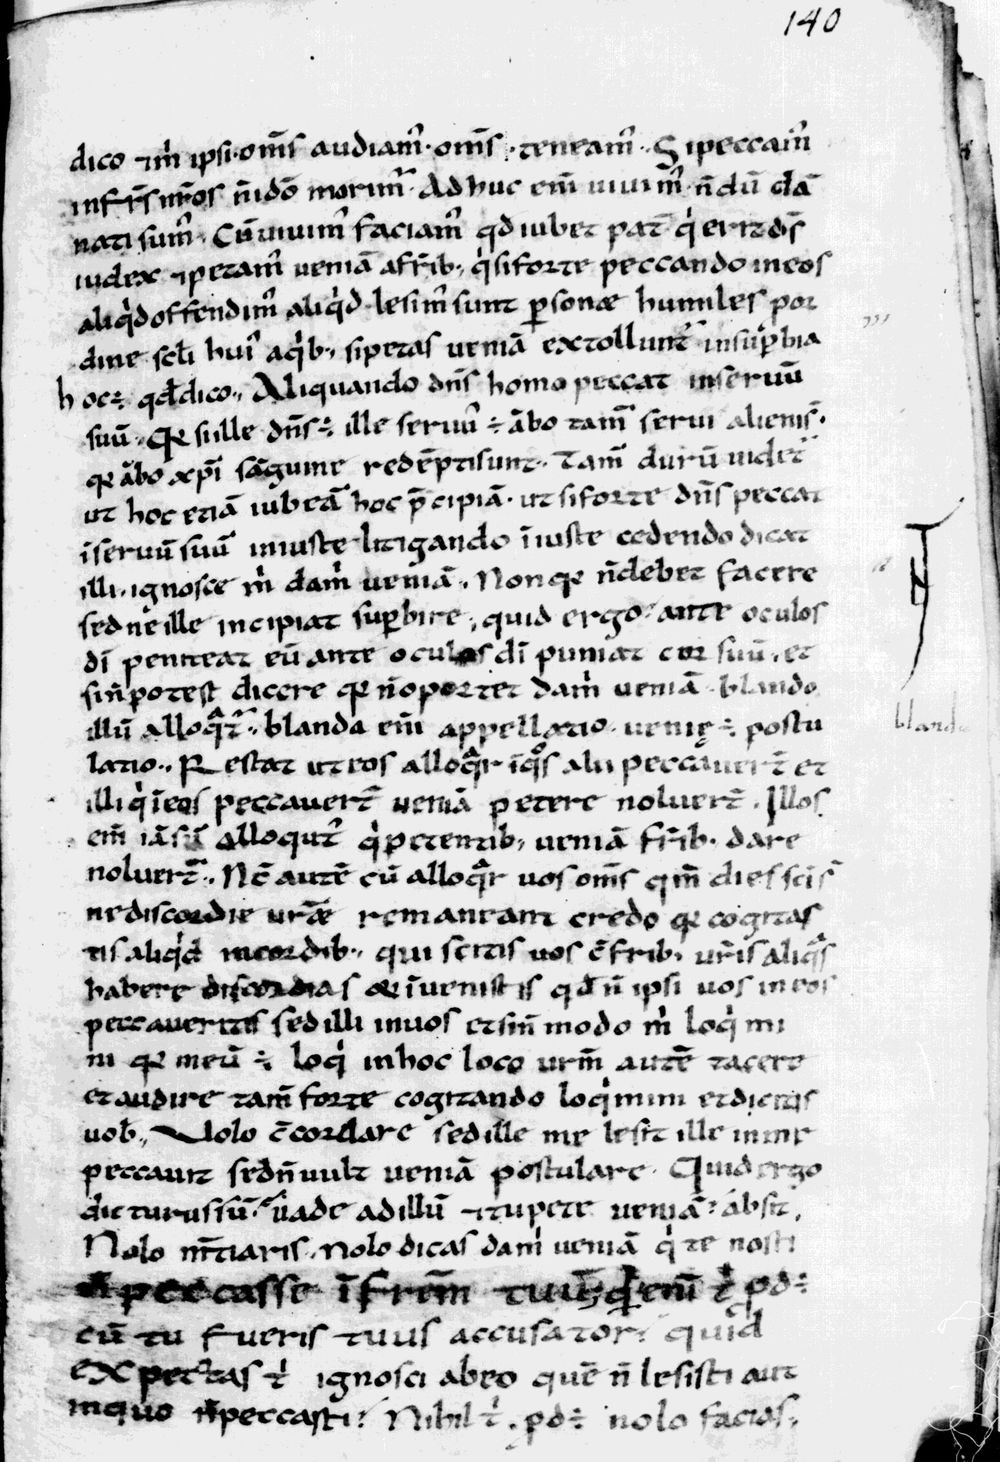 140
dico ⁊ m̅ ipsi · om̅s audiam᷒ · om̅s · teneam᷒ · Si peccam᷒
in fr̅s nr̅os n̅ idō morim᷒ · Adhuc em̅ uiuim᷒ · n̅dū dā
nati sum᷒ · Cū uiuim᷒ faciam᷒ qd iubet pat̅ qͥ erit ds̅
iudex ⁊ petam᷒ ueniā a fr̅ib; qͥ si forte peccando in eos
aliqͥd offendim᷒ aliqͥd lesim᷒ sunt p̲sonæ humiles por
dine scl̅i hui᷒ a qͥb; si petas ueniā extollunt᷒ in sup̲bia
hoc ÷ qd̅ dico · Aliquando dn̅s homo peccat in seruū
suū · Qr si ille dn̅s ÷ ille seruu᷒ ÷ ābo tam̅ serui alieni s̅ ·
qr ābo xp̅i sāguine redēpti sunt · Tam̅ durū uidet᷒
ut hoc etiā iubeā hoc p̅cipiā · ut si forte dn̅s peccat
ī seruū suū iniuste litigando īiuste cedendo dicat
illi · ignosce m̅ dam̅ ueniā · Non qr n̅ debet facere
sed ne ille incipiat sup̲bire · quid ergo · ante oculos
dī peniteat eū ante oculos dī puniat cor suū · et
si n̅ potest dicere qr n̅ oportet dam̅ ueniā · blando
illū alloqͣt᷒ · blanda em̅ appellatio · uenię ÷ postu
latio · Restat ut eos alloqͣr ī qͦs alii peccauer̅t et
illi qͥ ī eos peccauer̅t ueniā petere noluer̅t · Illos
em̅ iā sū alloqut᷒ qͥ petentib; ueniā fr̅ib · dare
noluer̅t · Nc̅ autē cū alloqͣr uos om̅s qm̅ dies sci s̅
ne discordie ur̅æ remaneant credo qr cogitas
tis aliqͥd in cordib; · qui scitis uos c̅ frib; ur̅is aliqͣs
habere discordias & īuenistis qd̅ n̅ ipsi uos in eos
peccaueritis sed illi in uos et si n̅ modo m̅ loqͥmi
ni qr meū ÷ loqͥ in hoc loco ur̅m autē tacere
et audire tam̅ forte cogitando loqͥmini et dicitis
uob̅ · Uolo c̅cordare sed ille me lesit ille in me
peccauit sed n̅ uult ueniā postulare · Quid ergo
dicturus sū · uade ad illū ⁊ tu pete ueniā · absit ·
Nolo m̅tiaris · nolo dicas dam̅ ueniā qͥ te nosti
n̅ peccasse ī frem̅ tuū · qͥd em̅ t̅ pd ÷
cū tu fueris tuus accusator quid
expectas t̅ ignosci ab eo quē n̅ lesisti aut
in quo n̅ peccasti · Nihil t̅ · pd ÷ nolo facias ·
bland